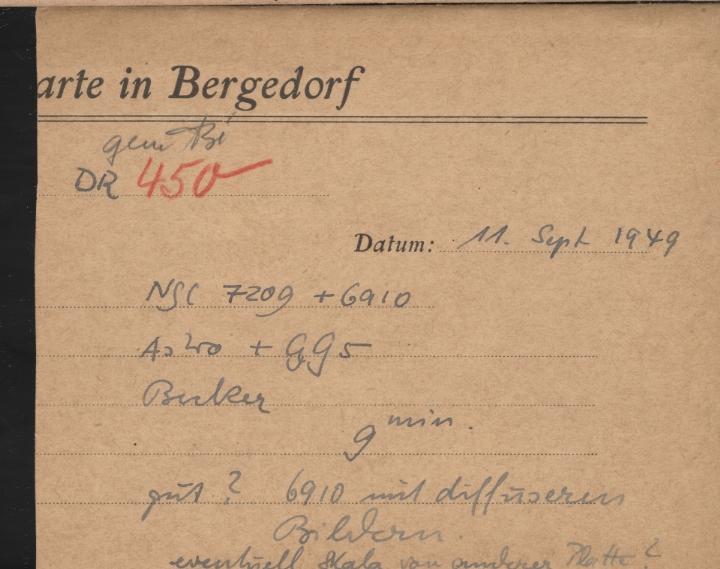 arte in Bergedorf
gem Bi
DR 450
Datum: 11. Sept 1949
NGC 7209 + 6910
Astro + GG5
Becker
9 min.
gut ? 6910 mit diffuseren
Bildern.
eventuell Skala von anderer Platte ?